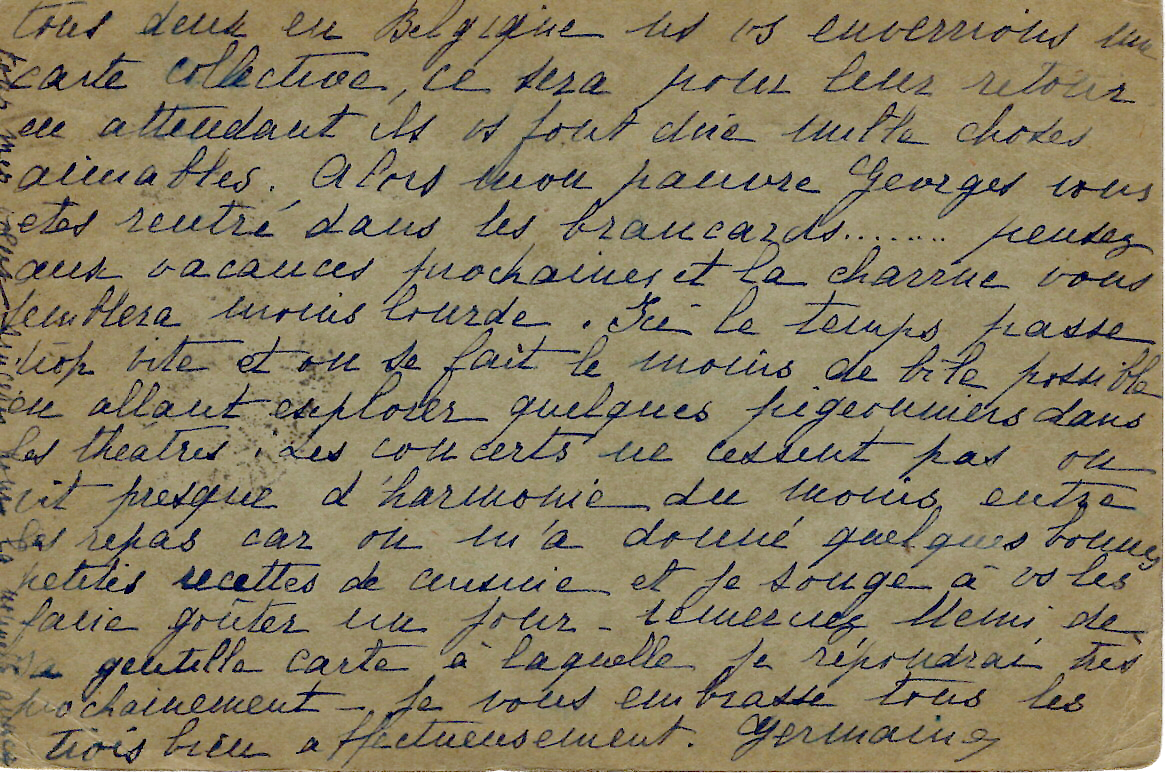 tous deux en Belgique ns vs enverrions une
carte collective, ce sera pour leur retour
en attendant ils vs font dire mille choses
aimables. Alors mon pauvre Georges vous
etes rentré dans les brancards........ pensez
aux vacances prochaines et la charrue vous
semblera moins lourde. Ici le temps passe
trop vite et on se fait le moins de bile possible
en allant explorer quelques pigeonniers dans
les théâtres. Les concerts ne cessent pas on
vit presque d'harmonie du moins entre
les repas car on m'a donné quelques bonnes
petites recettes de cuisine et je songe à vs les
faire goûter un jour - remerciez Memi de
sa gentille carte à laquelle je répondrai très
prochainement - je vous embrasse tous les
trois bien affectueusement. Germaine
tous mes vœux sincères pour la nouvelle année